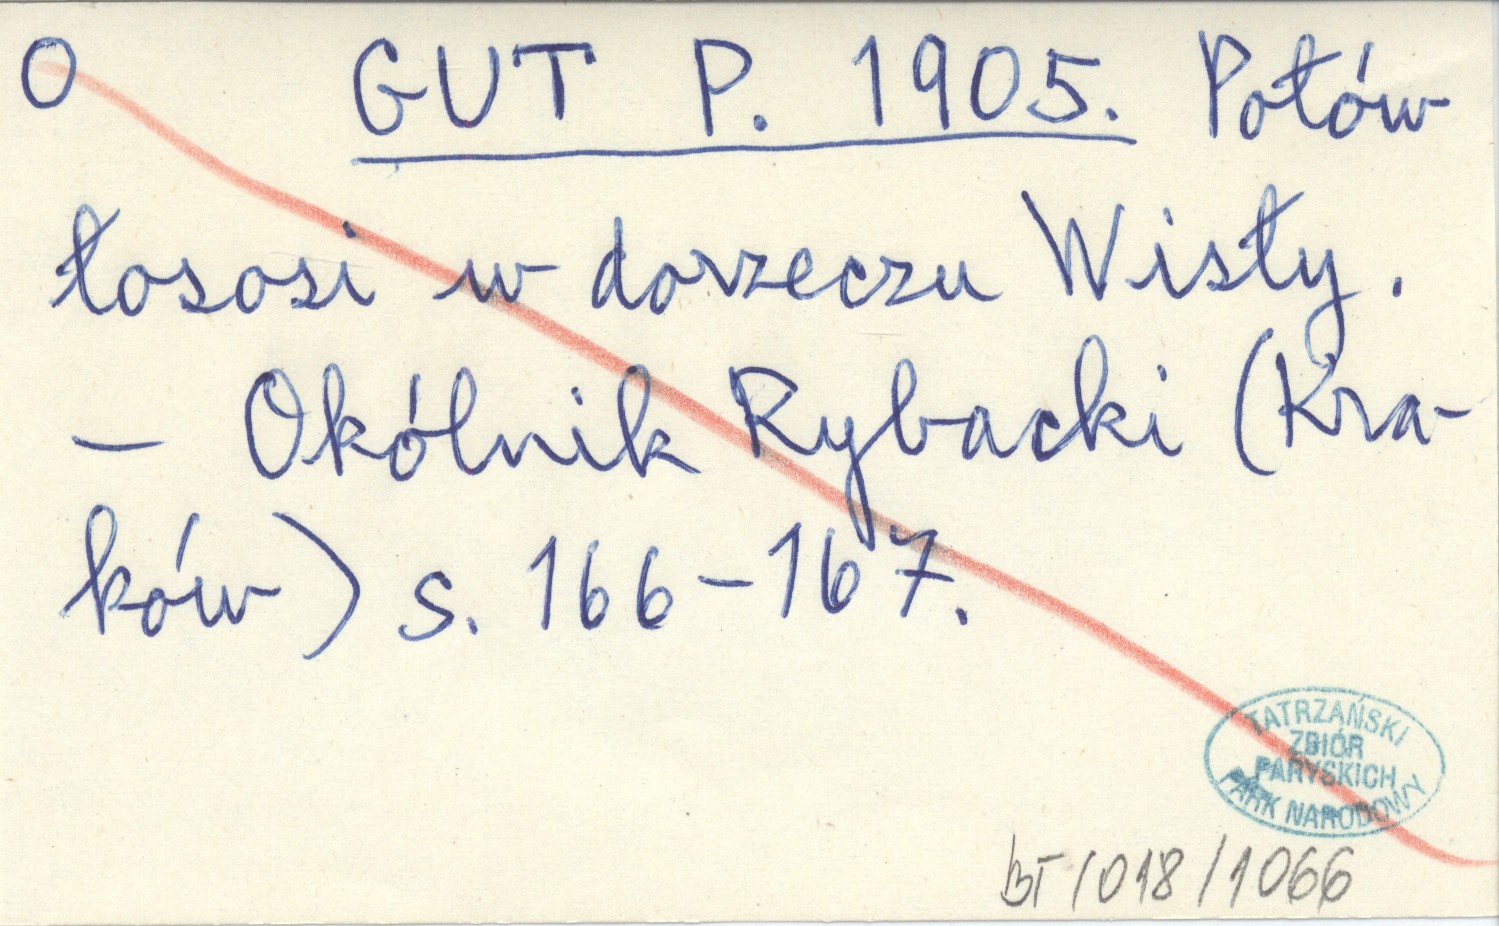 O GUT P. 1905. Połów
łososi w dorzeczu Wisły.
— Okólnik Rybacki (Kra-
ków) s. 166-167.
TATRZAŃSKI
ZBIÓR
PARYSKICH
PARK NARODOWY
BT/018/1066